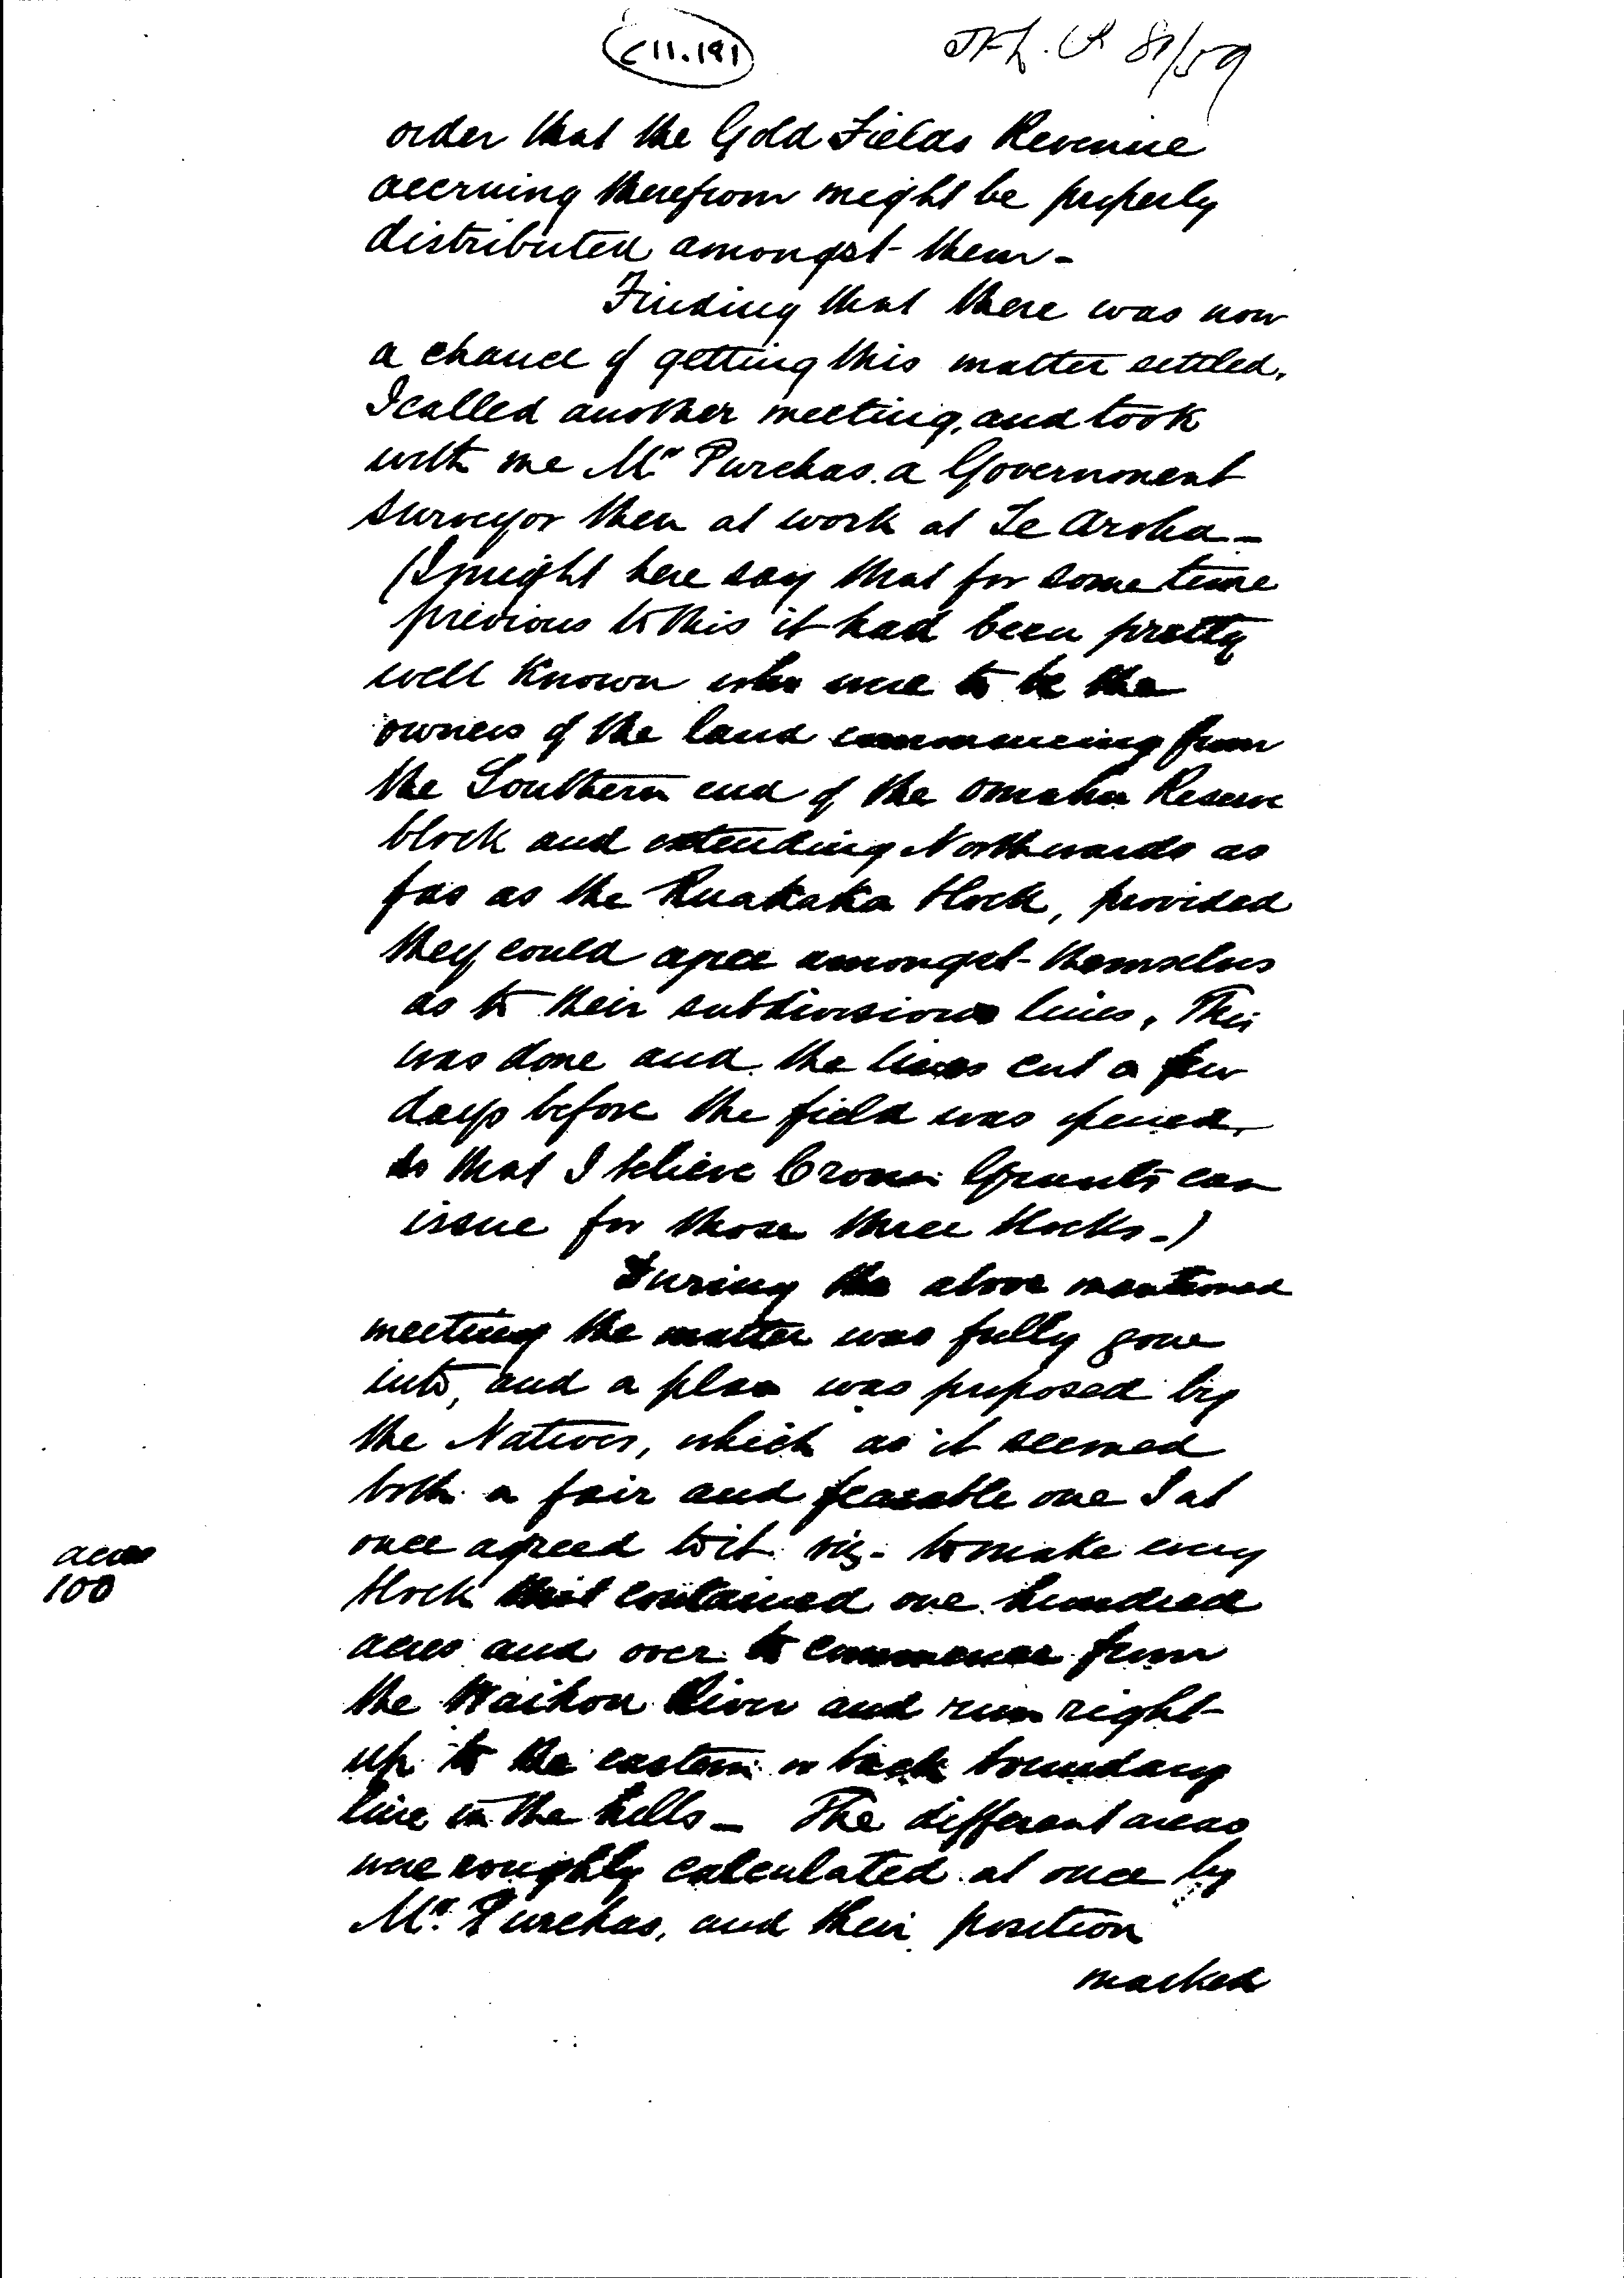 C11.191
81/59
order that the Gold Fields Revenue
accruing therefrom might be properly
distributed amongst them -
Finding that there was now
a chance of getting this matter settled,
I called another meeting, and took
with me Mr Purchas. a Government
surveyor then at work at Te Aroha -
(I might here say that for some time
previous to this it had been pretty
well known who were to be the
owners of the land commencing from
the Southern end of the Omahu Reserve
block and extending Northwards as
far as the Ruakaka block, provided
they could agree amongst themselves
as to their subdivision lines, This
was done and the lines cut a few
days before the field was opened,
so that I believe Crown Grants can
issue for those three blocks -)
During the above mentioned
meeting the matter was fully gone
into, and a plan was proposed by
the Natives, which as it seemed
both a fair and feasable one I at
once agreed to it. viz - to make every
acres
100
block that contained one hundred
acres and over to commence from
the Waihou River and run right
up to the eastern or back boundary
line in the hills - The different areas
were roughly calculated at once by
Mr. Purchas, and their position
marked